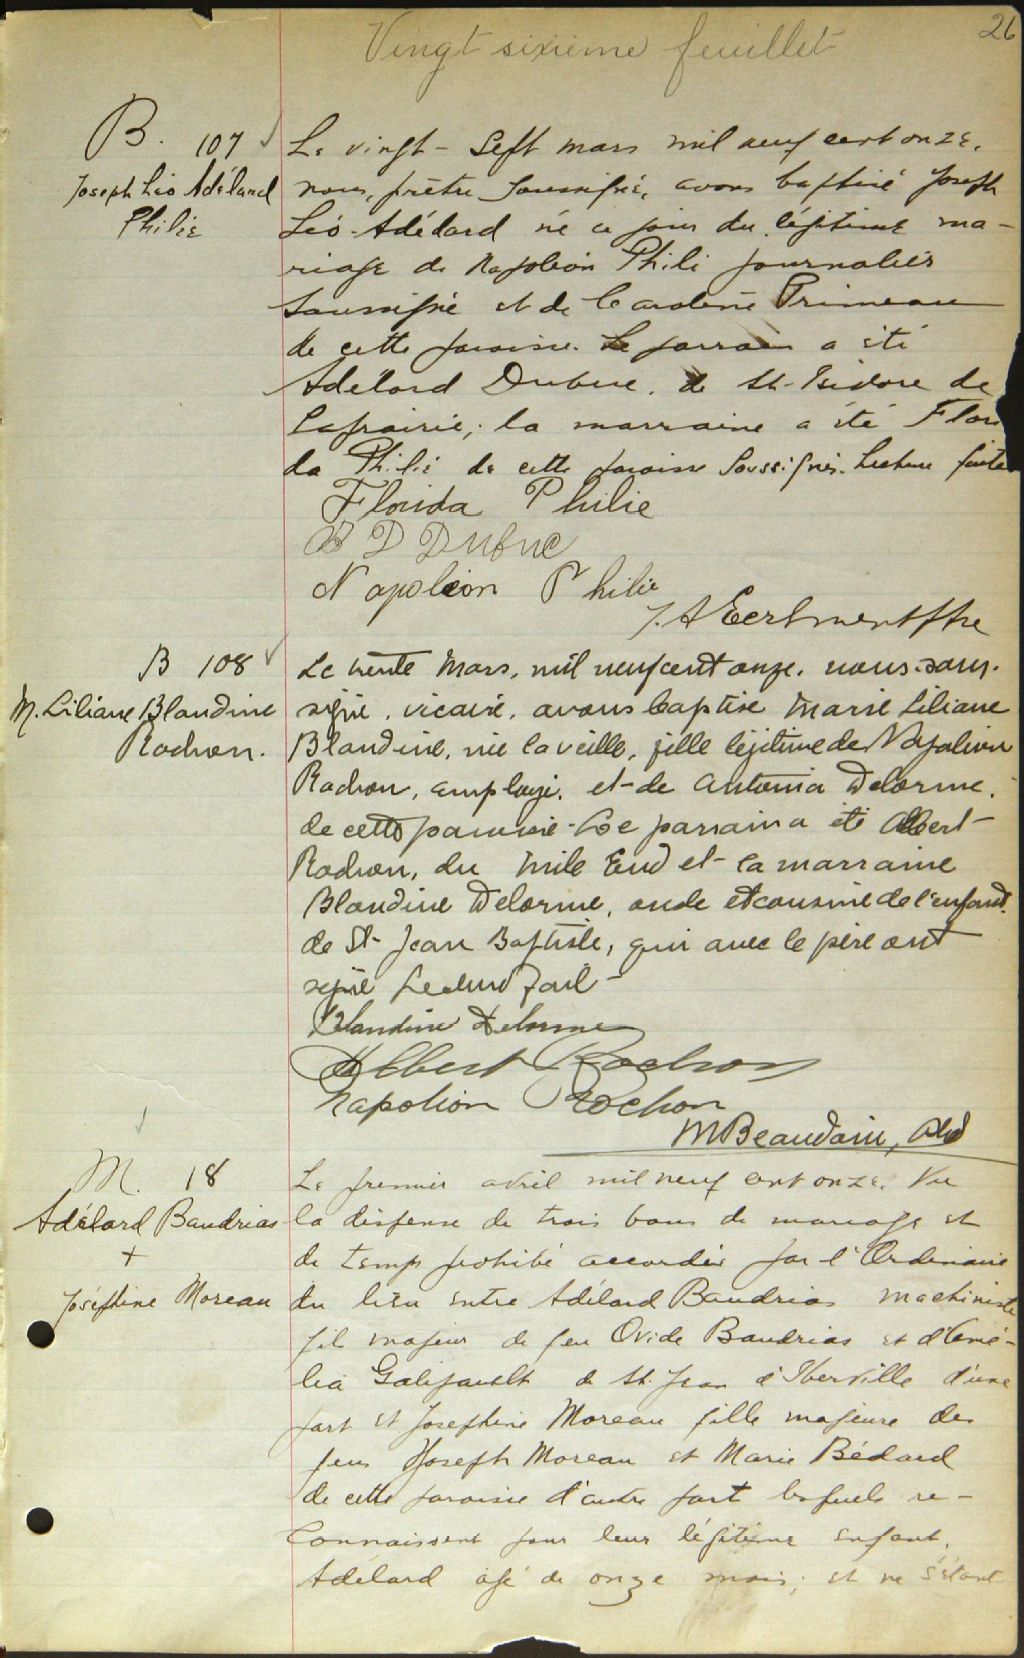 Vingt sixième feuillet
26
B. 107
Joseph Léo Adélard
Philie
Le vingt-sept mars mil neuf cent onze,
nous, prêtre soussigné, avons baptisé Joseph
Léo-Adélard né ce jour du légitime ma-
riage de Napoléon Phili journalier
soussigné et de Primeau
de cette paroisse. Le parrain a été
Adélard Dubuc, de St-Isidore de
Laprairie; la marraine a été Flori
da Philie de cette paroisse soussignés. Lecture faite
Florida Philie
A D Dubuc
Napoleon Philie
B 108
M. Liliane Blandine
Rochon.
Le trente Mars, mil neuf cent onze, nous sous-
signé, vicaire, avons baptisé Marie Liliane
Blandine, née la veille, fille légitime de Napoléon
Rochon, employé, et de Antonia Delorme,
de cette paroisse. Le parrain a été Albert
Rochon, du Mile End et la marraine
Blandine Delorme, oncle et cousine de l'enfant,
de St Jean Baptiste, qui avec le père ont
signé Lecture fait
Blandine Delorme
Albert Rochon
Napoléon Rochon
M Beaudoin, Ptre
M. 18
Adélard Baudrias
+
Joséphine Moreau
Le premier avril mil neuf cent onze. Vu
la dispense de trois bans de mariage et
de temps prohibé accordée par l'Ordinaire
du lieu entre Adélard Baudrias machiniste
fils majeur de feu Ovide Baudrias et d'Amé-
lia Galipault de St. Jean d'Iberville d'une
part et Josephine Moreau fille majeure de
feu Joseph Moreau et Marie Bédard
de cette paroisse d'autre part lesquels re-
connaissent pour leur légitime enfant,
Adélard âgé de onze mois; et ne s'étant